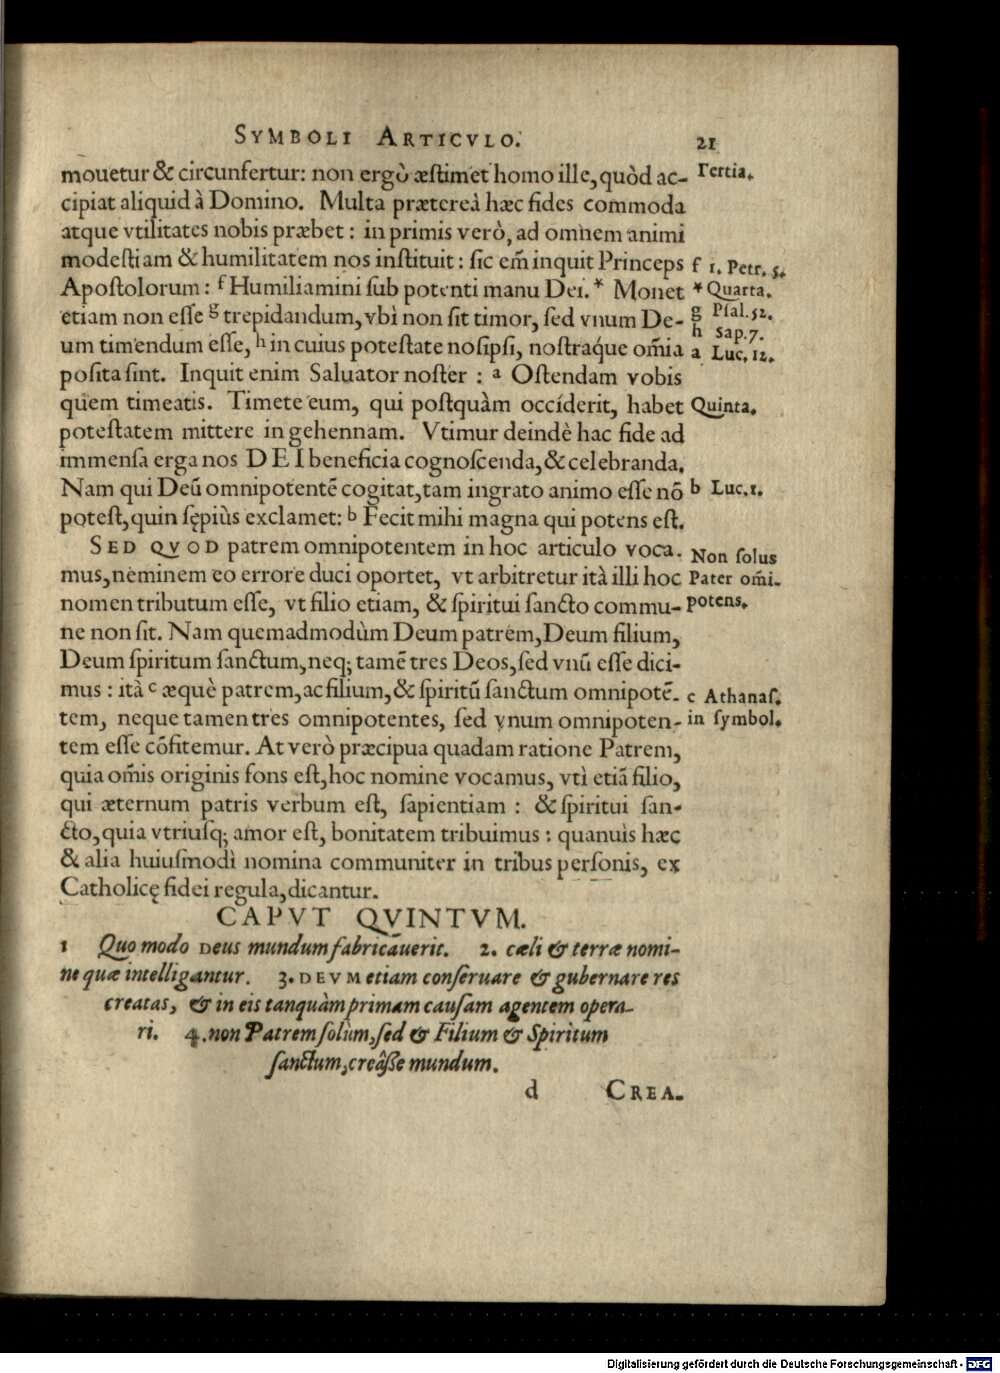 SYMBOLI ARTICVLO. 21
mouetur & circunfertur: non ergò æſtimet homo ille, quòd ac- Tertia.
cipiat aliquid à Domino. Multa prætereà hæc fides commoda
atque vtilitates nobis præbet: in primis verò, ad omnem animi
modeſtiam & humilitatem nos inſtituit: ſic em̄ inquit Princeps f 1. Petr. 5.
Apoſtolorum: f Humiliamini ſub potenti manu Dei. * Monet * Quarta.
etiam non eſſe g trepidandum, vbi non ſit timor, ſed vnum De- g Pſal. 52.
h Sap. 7.
um timendum eſſe, h in cuius poteſtate noſipſi, noſtraq́ue om̄ia a Luc. 12.
poſita ſint. Inquit enim Saluator noſter: a Oſtendam vobis
quem timeatis. Timete eum, qui poſtquàm occíderit, habet Quinta.
poteſtatem mittere in gehennam. Vtimur deindè hac fide ad
immenſa erga nos DEI beneficia cognoſcenda, & celebranda.
Nam qui Deū omnipotentē cogitat, tam ingrato animo eſſe nō b Luc. 1.
poteſt, quin ſępiùs exclamet: b Fecit mihi magna qui potens eſt.
SED QVOD patrem omnipotentem in hoc articulo voca- Non ſolus
mus, neminem eo errore duci oportet, vt arbitretur ità illi hoc Pater om̄i-
nomen tributum eſſe, vt filio etiam, & ſpiritui ſancto commu- potens.
ne non ſit. Nam quemadmodùm Deum patrem, Deum filium,
Deum ſpiritum ſanctum, neq; tamē tres Deos, ſed vnū eſſe dici-
mus: ità c æquè patrem, ac filium, & ſpiritū ſanctum omnipotē- c Athanaſ.
tem, neque tamen tres omnipotentes, ſed vnum omnipoten- in ſymbol.
tem eſſe cōfitemur. At verò præcipua quadam ratione Patrem,
quia om̄is originis fons eſt, hoc nomine vocamus, vtì etiā filio,
qui æternum patris verbum eſt, ſapientiam: & ſpiritui ſan-
cto, quia vtriuſq; amor eſt, bonitatem tribuimus: quanuìs hæc
& alia huiuſmodì nomina communiter in tribus perſonis, ex
Catholicę fidei regula, dicantur.
CAPVT QVINTVM.
1 Quo modo DEus mundum fabricâuerit. 2. cæli & terræ nomi-
ne quæ intelligantur. 3. DEVM etiam conſeruare & gubernare res
creatas, & in eis tanquàm primam cauſam agentem opera-
ri. 4. non Patrem ſolùm, ſed & Filium & Spiritum
ſanctum, creâſſe mundum.
d CREA-
Digitalisierung gefördert durch die Deutsche Forschungsgemeinschaft - DFG